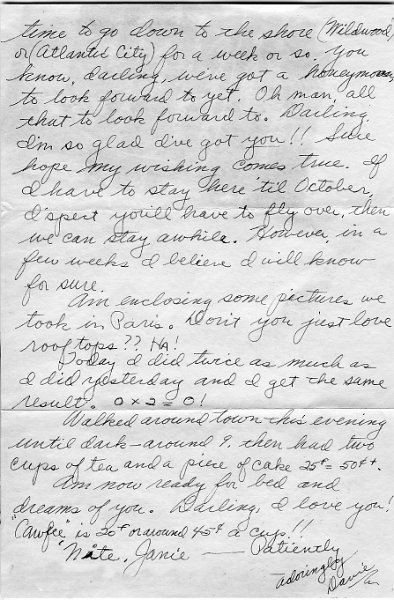 time to go down to the shore (Wildwood)
or (Atlantic City) for a week or so. You
know, darling, we've got a honeymoon
to look forward to yet. Oh man, all
that to look forward to. Darling,
I'm so glad I've got you!! Sure
hope my wishing comes true. If
I have to stay here 'til October,
I 'spect you'll have to fly over, then
we can stay awhile. However, in a
few weeks I believe I will know
for sure.
Am enclosing some pictures we
took in Paris. Don't you just love
roof tops?? HA!
Today I did twice as much as
I did yesterday and I get the same
result. 0 x 2 = 0!
Walked around town this evening
until dark - around 9. then had two
cups of tea and a piece of cake 25¢ = 50¢+.
Am now ready for bed and
dreams of you. Darling, I love you!
"Cawfee" is 20¢ or around 45¢ a cup!!
"Nite, Janie — Patiently
adoringly
Davie